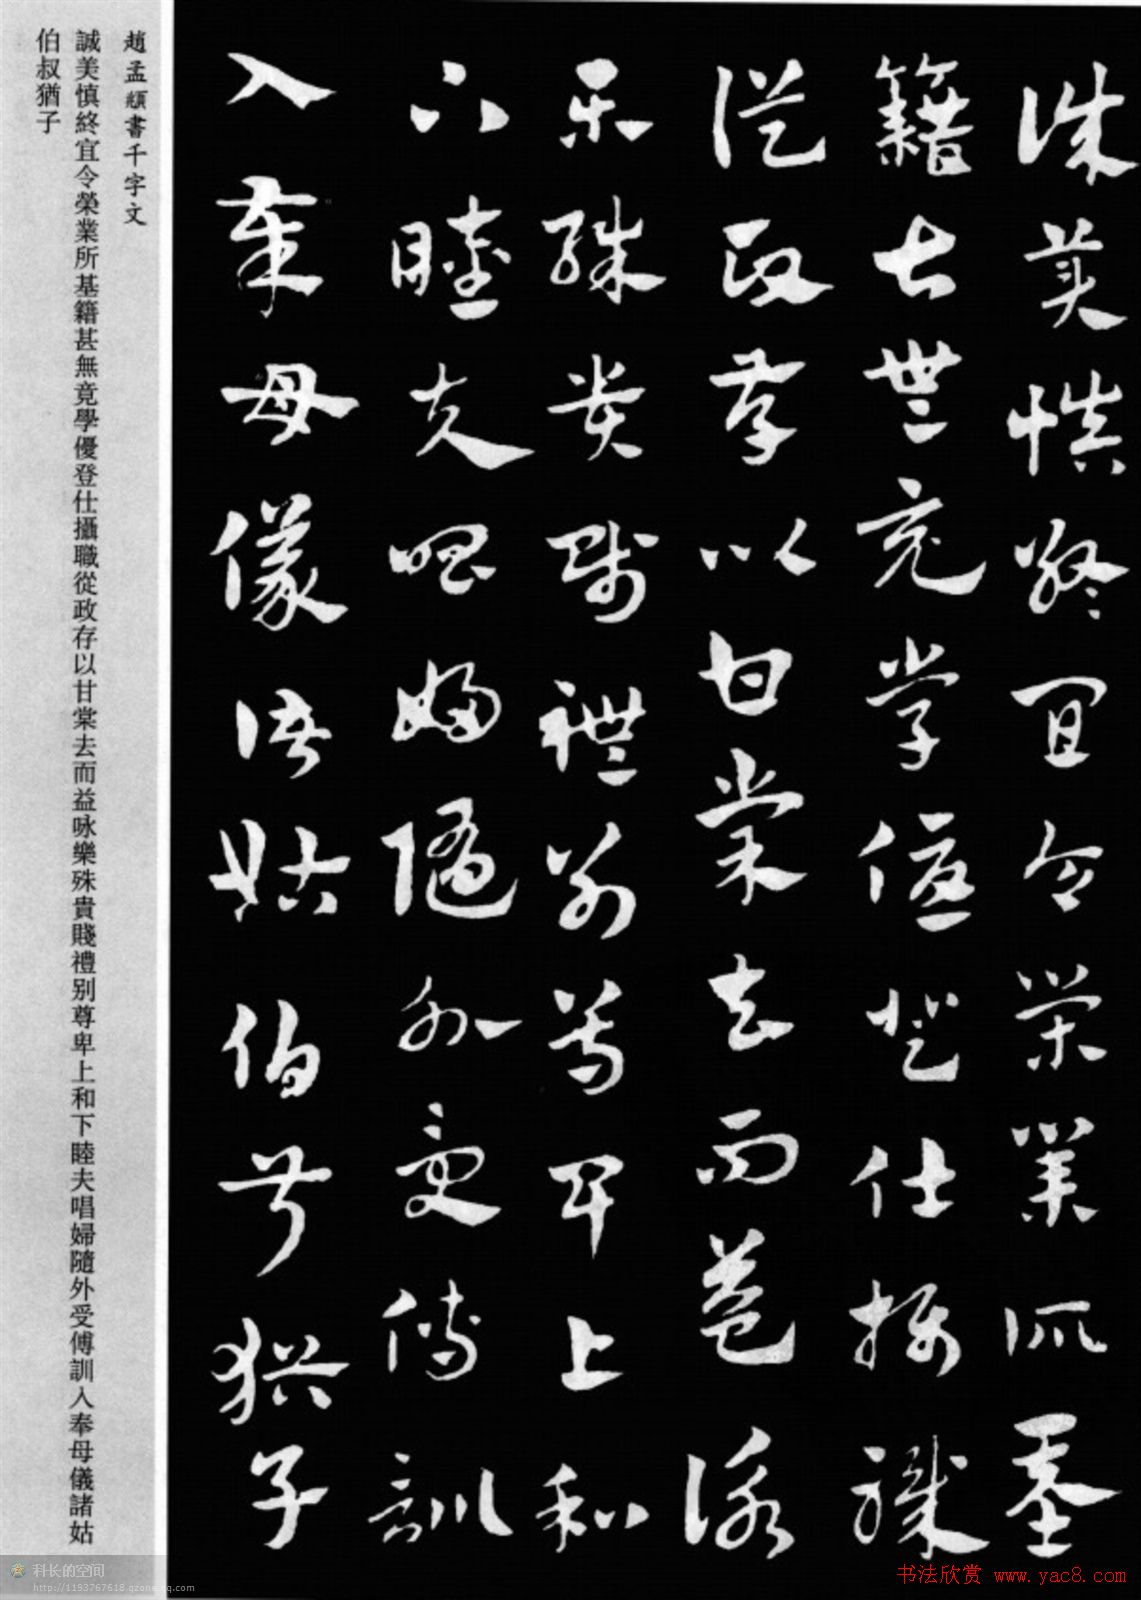 誠美慎終宜令榮業所基
籍甚無竟學優登仕攝職
從政存以甘棠去而益詠
樂殊貴賤禮別尊卑上和
下睦夫唱婦隨外受傅訓
入奉母儀諸姑伯叔猶子
趙孟頫書千字文
誠美慎終宜令榮業所基籍甚無竟學優登仕攝職從政存以甘棠去而益咏樂殊貴賤禮别尊卑上和下睦夫唱婦隨外受傅訓入奉母儀諸姑
伯叔猶子
科长的空间
http://1193767618.qzone.qq.com
书法欣赏 www.yac8.com